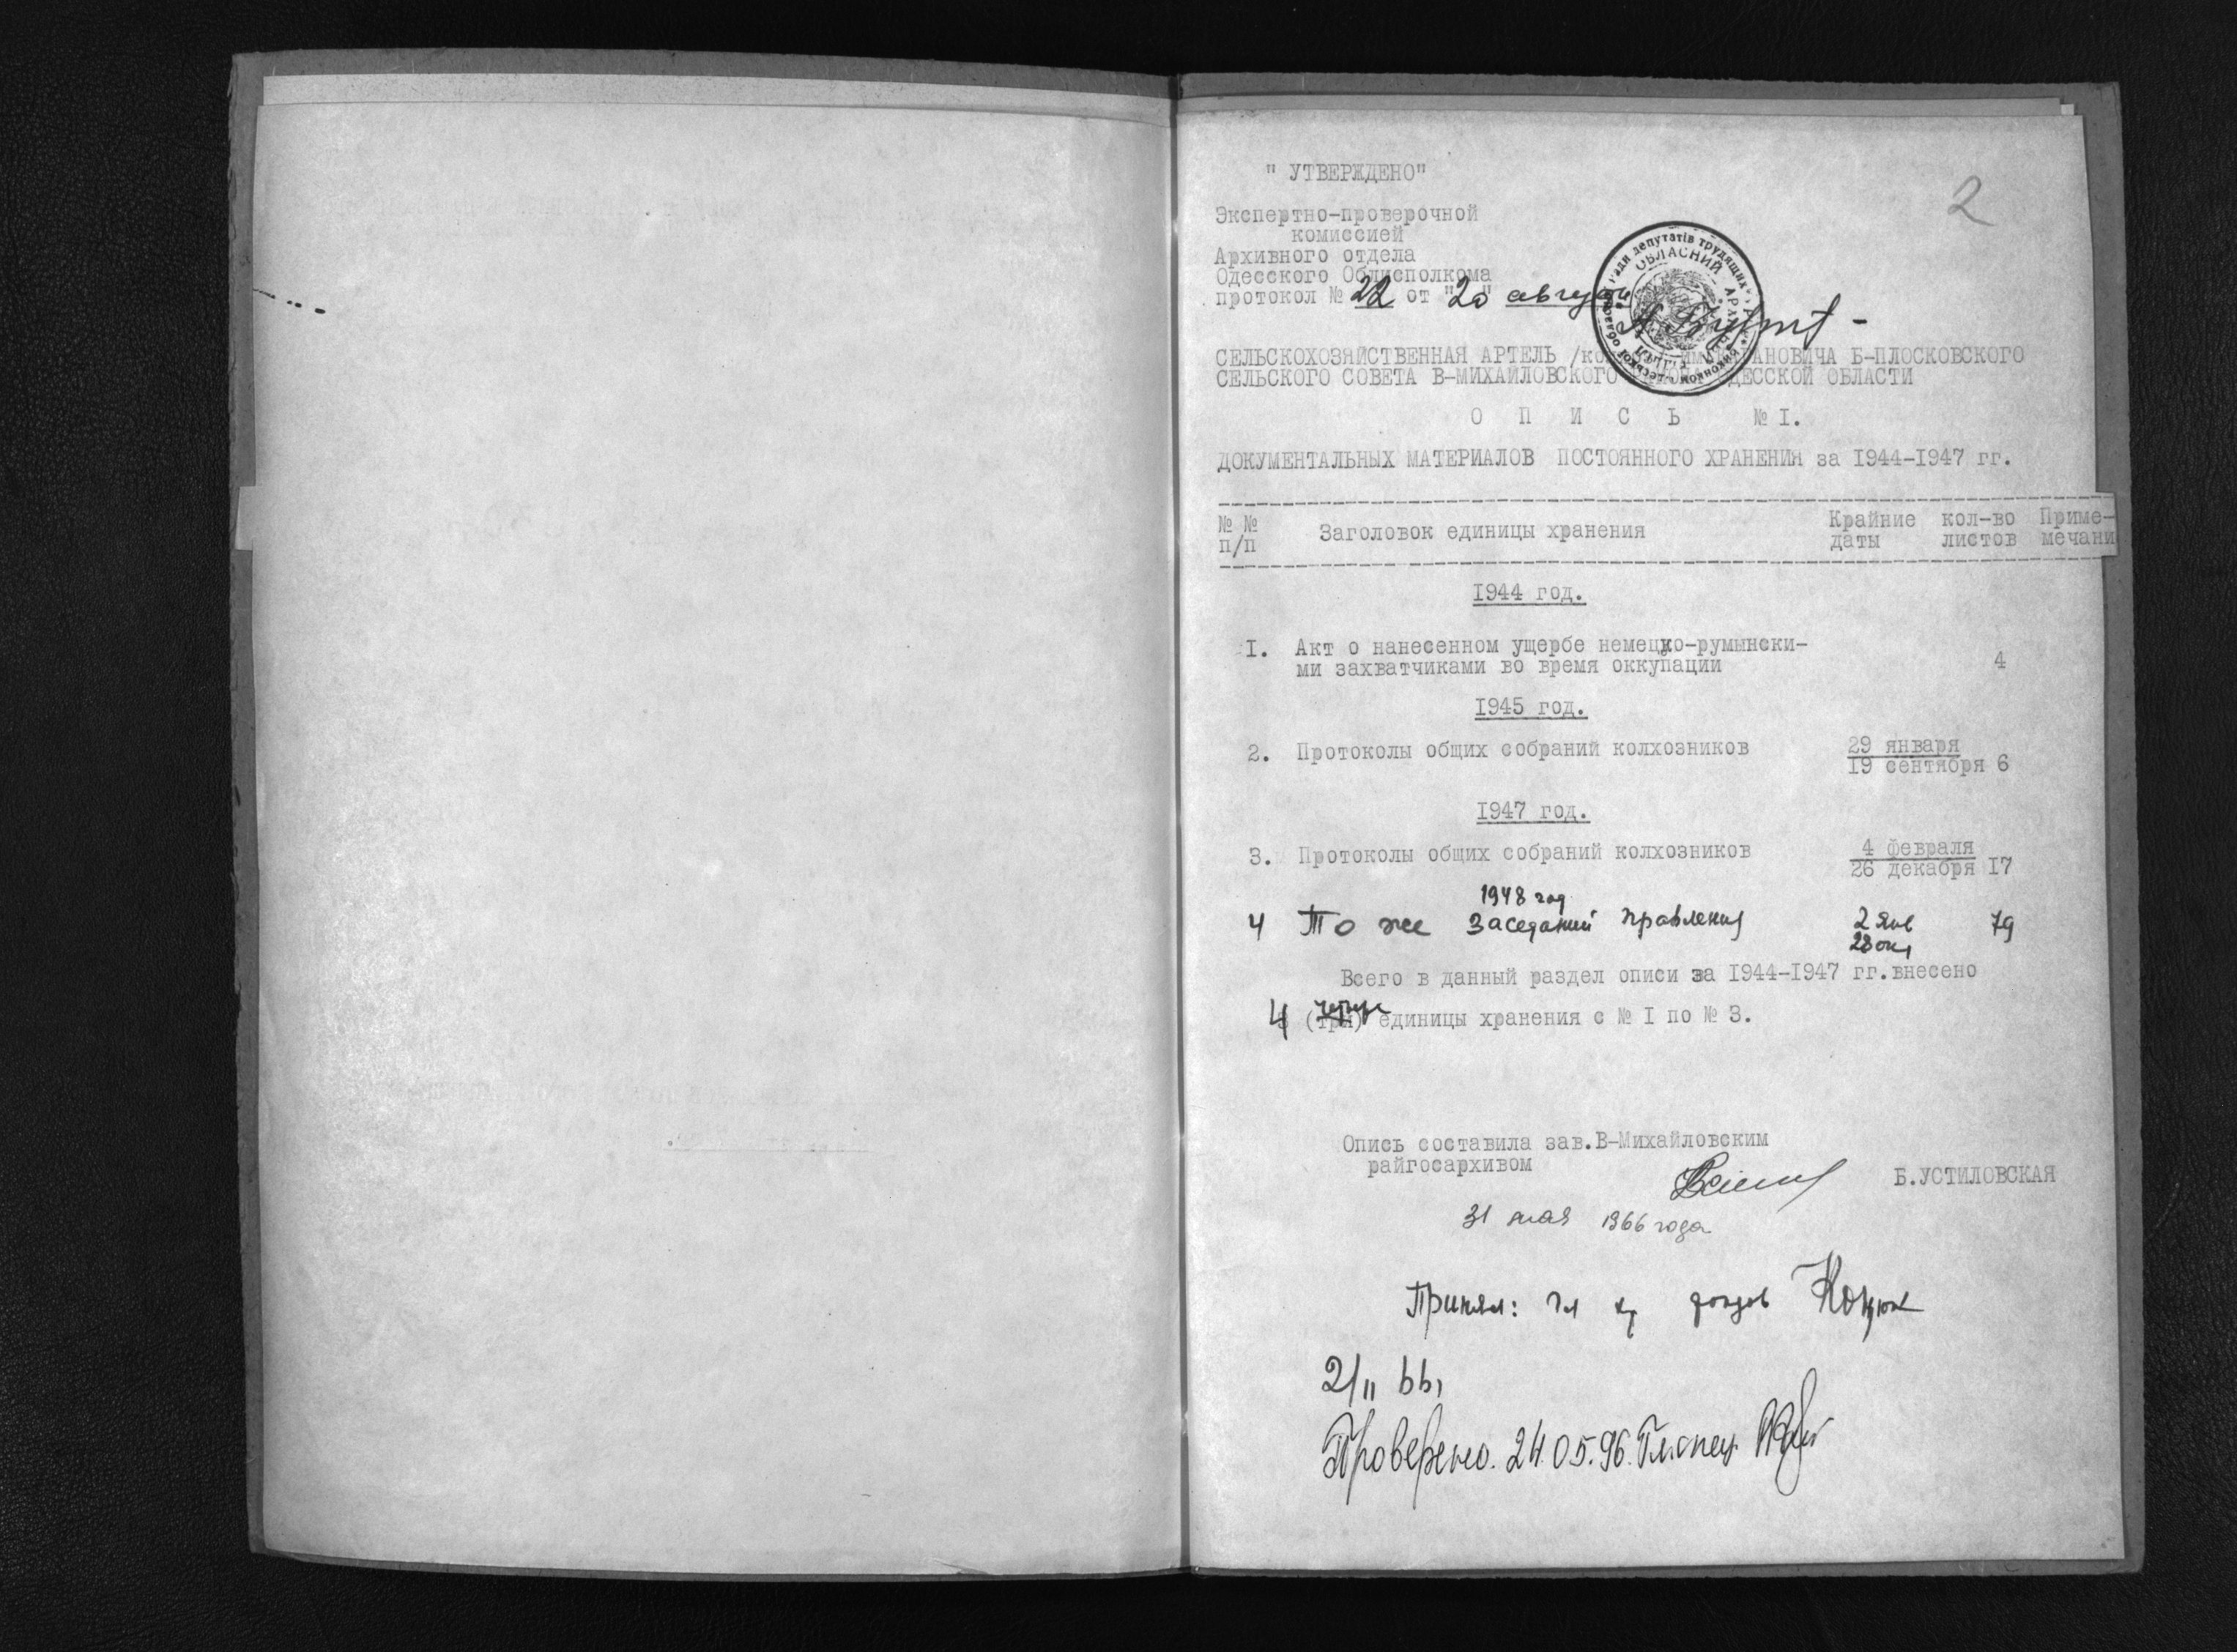 2
" УТВЕРЖДЕНО"
Экспертно-проверочной
комиссией
Архивного отдела
Одесского Облисполкома
протокол № 22 от "20" августа
ОБЛАСНИЙ АРХІВ
депутатів трудящих
СЕЛЬСКОХОЗЯЙСТВЕННАЯ АРТЕЛЬ /ко Б-ПЛОСКОВСКОГО
СЕЛЬСКОГО СОВЕТА В-МИХАЙЛОВСКОГО ОБЛАСТИ
О П И С Ь № I.
ДОКУМЕНТАЛЬНЫХ МАТЕРИАЛОВ ПОСТОЯННОГО ХРАНЕНИЯ за I944-I947 гг.
№ № п/п Заголовок единицы хранения Крайние даты кол-во листов Приме-мечани
I944 год.
I. Акт о нанесенном ущербе немецко-румынски-
ми захватчиками во время оккупации 4
I945 год.
2. Протоколы общих собраний колхозников 29 января
I9 сентября 6
I947 год.
3. Протоколы общих собраний колхозников 4 февраля
26 декабря I7
1948 год
4 То же заседаний правления 2 янв 79
28 окт
Всего в данный раздел описи за I944-I947 гг.внесено
4 (три) единицы хранения с № I по № 3.
Опись составила зав.В-Михайловским
райгосархивом
Б.УСТИЛОВСКАЯ
31 мая 1966 года
Принял:
2/II 66
Проверено. 24.05.96. Гл.спец.